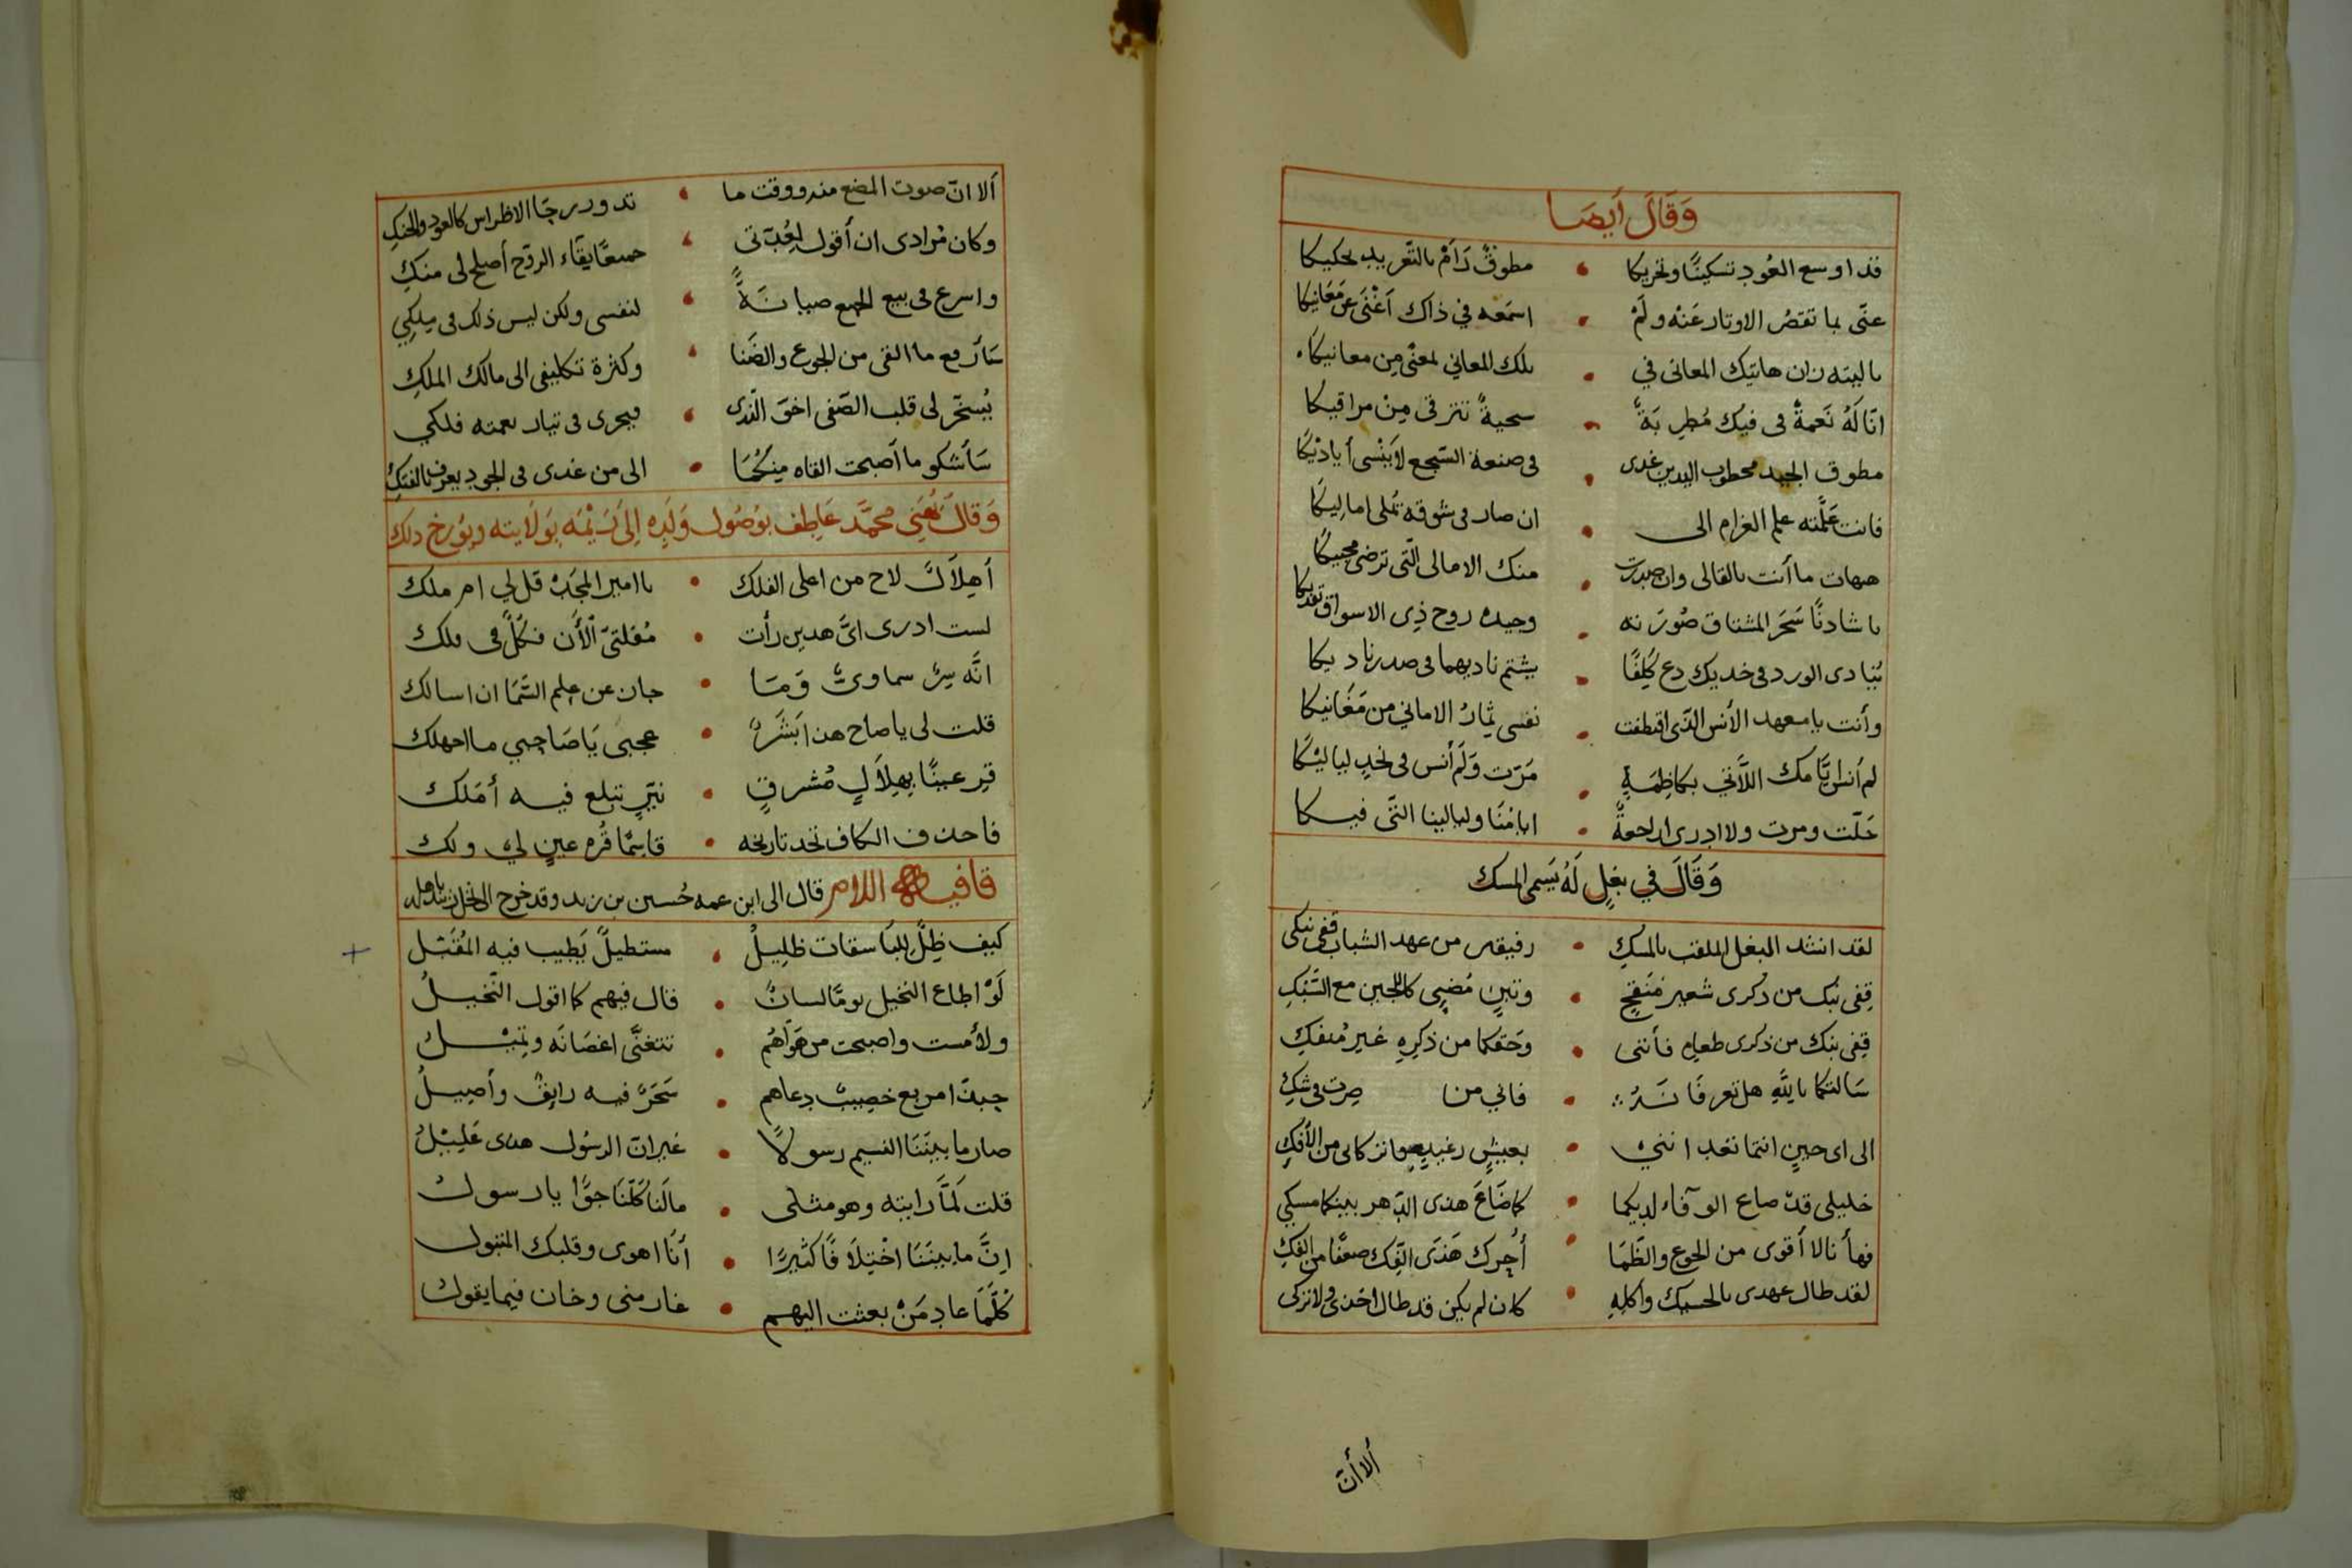 وَقَالَ أَيضًا
قد اوسع العُود تسكينًا وتحريكا • مطوقٌ دَامَ بالتَّغريد يحكيكا
عنّى بما تقصُر الاوتار عَنْه ولَمْ • اسمَعه في ذاك أغْنَى عن مَعَانيكا
يا ليته زان هاتيك المعانى في • تلك المعاني لمعنًى مِن معانيكا
انّا لَهُ نَغمةً فى فيك مُطرِبَةً • سحيةً تترقى مِنْ مراقيكا
مطوق الجيد مخطوب اليدين غدى • فى صنعة السّجع لا يَنْسى أياديْكَا
فانت عَلّمته علم الغرام الى • ان صار فى شوقه تُملى اماليكَا
هيهات ما أنت بالقالى وان صدرت • منك الامالى الّتى ترضى محبيكَا
يا شادنًا سَحَر المشتاق صُورَته • وجيده روح ذِى الاسواق تفديكا
بُنيادى الورد فى خديك دع كَلِفًا • يشتم ناديهما فى صدر ناديكا
وأنت يا معهد الأنس الذى اقتطفت • نفسى ثمارُ الامانى من مَغَانيكا
لم أنس ايّامك اللَّاتي بكاظِمَةٍ • مَرّت وَلَم أنس فى نجدٍ لياليْكَا
حَلّت ومرت ولا ادرى ارجعةً • ايامُنَا وليالينا الَّتى فيكا
وَقَالَ في بغلٍ لَهُ يسَمى المسك
لقد انشد البغل الملقب بالمسكِ • رفيقه من عهد الشباب قفى نبكى
قِفى نبك من ذكرى شعيرٍ مُنقحٍ • وتبنٍ مُضيى كاللجين مع السّبكِ
قفى نبك من ذكرى طعامٍ فأننى • وحَقكما من ذكرِهِ غير مُنفكِ
سَالتكما باللّهِ هل تعرفَا نَدُ • فانى من صرت فى شكِ
الى اى حينٍ انتما تغدِ اننى • بعيشٍ رغيدٍ من الأفكِ
خليلى قد صاع الوفاء لديكما • كما ضَاعَ هذى الدّهر بينكما مسكى
فها أنا لا أقوى من الجوع والظّمَا • أُحرك هَذى الفك صعفًا من الفكِ
لقد طال عهدى بالحسيك وأكلِهِ • كان لم يكن قد طال اخذى ولا تركى
ألا أنّ
ألا انّ صوت المضع منه ووقت ما • تدور رحَا الاظراس كالعود والجنكِ
وكان مُرادى ان أقول لِعُبّتى • جميعًا بقاء الروّح أصلح لى منكِ
واسرع فى بيع الجميع صيانَةً • لنفسى ولكن ليس ذلك فى مِلكِي
سَأرفع ما القى من الجوع والضّنا • وكثرة تكليفى الى مالك الملكِ
يُسخّر لى قلب الصّفى اخوَ النّدى • فيجرى فى تيار نعمته فلكي
سَأشكو ما أصبحت القاه مِنكُمَا • الى من غدى فى الجود يعرف بالفتكِ
وَقَالَ يُهَنِى محمَّد عَاطِف بوُصُول وَلَدِه إلى بَوَلَايته ويؤرخ ذلك
أهِلَالٌ لاح من اعلى الفلك • يا امير المجَد قل لي ام ملك
لست ادرى اىَّ هذين رأت • مُقلتىَّ الأَن فكُلٌّ فى فلك
انَّه سِرٌ سماوىٌ وَمَا • جان عن علم السَّمَا ان اسالك
قلت لى يا صاح هذا بَشَرٌ • عجبى يَا صَاحِبي ما اجهلك
قِر عينًا بِهِلَالٍ مُشرقٍ • نيّرٍ تبلع فيه أمَلك
فاحذف الكاف تجد تاريخه • قاسمًا قُره عينٍ لي ولك
قافيه اللام قال الى ابن عمه حُسين بن زيد وقد خرج الى النخل
كيف ظِلٌّ للبَاسقات ظلِيلُ • مستطيلٌ يَطِيب فيه المُقَيَل
لَوْ اطاع النخيل يومًا لسانٌ • قال فيهم كما اقول النّخيلُ
ولأمست واصبحت من هَوَاهُم • تتغنّى اغصَانَه وتميْلُ
حبذا مربع خصِيبٌ دعاهم • سَحَرٌ فيه رايقٌ وأصِيلُ
صار ما بينَنَا النسيم رسولًا • غير انّ الرسُول هذى عَلِيْلُ
قلت لَمَّا رايته وهو مثلى • مالَنا كُلّنَا جوًّا يا رسول
اِنَّ ما بينَنَا اخْتِلَافًا كثيرًا • أنَا اهوى وقلبك المتبول
كُلَّمَا عاد مَنْ بعثت اليهم • غار منى وخان فيما يقول